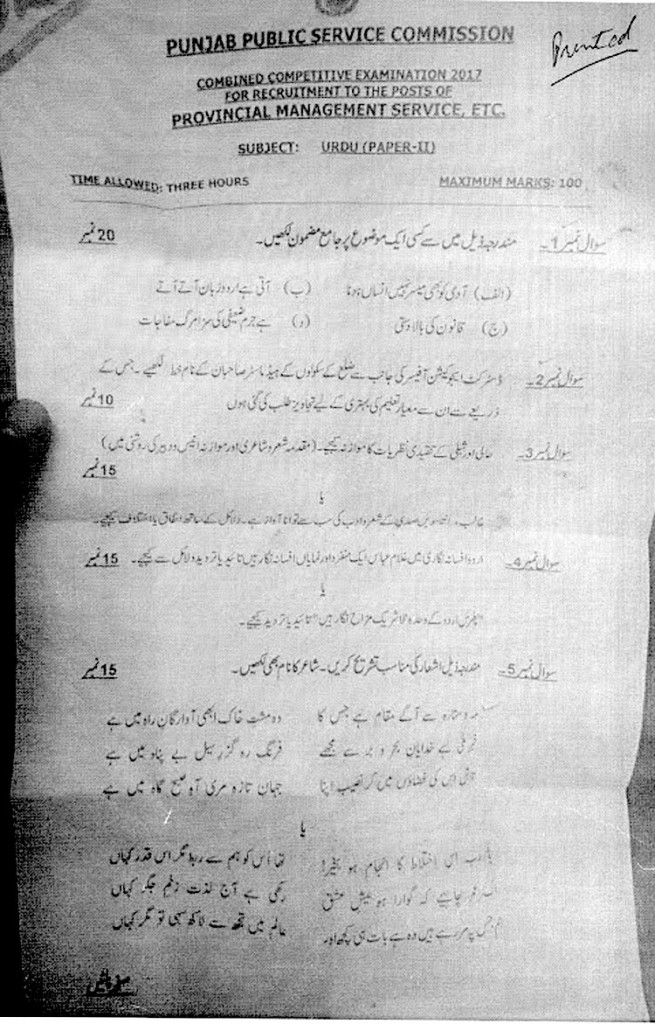 Printed
PUNJAB PUBLIC SERVICE COMMISSION
COMBINED COMPETITIVE EXAMINATION 2017
FOR RECRUITMENT TO THE POSTS OF
PROVINCIAL MANAGEMENT SERVICE, ETC.
SUBJECT: URDU (PAPER-II)
TIME ALLOWED: THREE HOURS MAXIMUM MARKS: 100
سوال نمبر 1۔ مندرجہ ذیل میں سے کسی ایک موضوع پر جامع مضمون لکھیں۔ 20 نمبر
(الف) آدمی کو بھی میسر نہیں انساں ہونا (ب) آتی ہے اردو زبان آتے آتے
(ج) قانون کی بالادستی (د) ہے جرم ضعیفی کی سزا مرگ مفاجات
سوال نمبر 2۔ ڈسٹرکٹ ایجوکیشن آفیسر کی جانب سے ضلع کے سکولوں کے ہیڈ ماسٹر صاحبان کے نام خط لکھیے۔ جس کے
ذریعے سے ان سے معیار تعلیم کی بہتری کے لیے تجاویز طلب کی گئی ہوں 10 نمبر
سوال نمبر 3۔ حالی اور شبلی کے تنقیدی نظریات کا موازنہ کیجیے۔ (مقدمہ شعر و شاعری اور موازنہ انیس و دبیر کی روشنی میں)
15 نمبر
یا
غالب، انیسویں صدی کے شعر و ادب کی سب سے توانا آواز ہے۔ دلائل کے ساتھ اتفاق یا اختلاف کیجیے۔
سوال نمبر 4۔ اردو افسانہ نگاری میں غلام عباس ایک منفرد اور نمایاں افسانہ نگار ہیں تائید یا تردید دلائل سے کیجیے۔ 15 نمبر
یا
"پطرس اردو کے وحدہ لاشریک مزاح نگار ہیں" تائید یا تردید کیجیے۔
سوال نمبر 5۔ مندرجہ ذیل اشعار کی مناسب تشریح کریں۔ شاعر کا نام بھی لکھیں۔ 15 نمبر
مہ و ستارہ سے آگے مقام ہے جس کا وہ مشت خاک ابھی آوارگان راہ میں ہے
خبر ملی ہے خدایان بحر و بر سے مجھے فرنگ رہ گزر سیل بے پناہ میں ہے
تلاش اس کی فضاؤں میں کر نصیب اپنا جہان تازہ مری آہ صبح گاہ میں ہے
یا
یا رب اس اختلاط کا انجام ہو بخیر تھا اُس کو ہم سے ربط مگر اس قدر کہاں
اک عمر چاہیے کہ گوارا ہو نیش عشق رکھی ہے آج لذت زخم جگر کہاں
ہم جس پہ مر رہے ہیں وہ ہے بات ہی کچھ اور عالم میں تجھ سے لاکھ سہی تو مگر کہاں